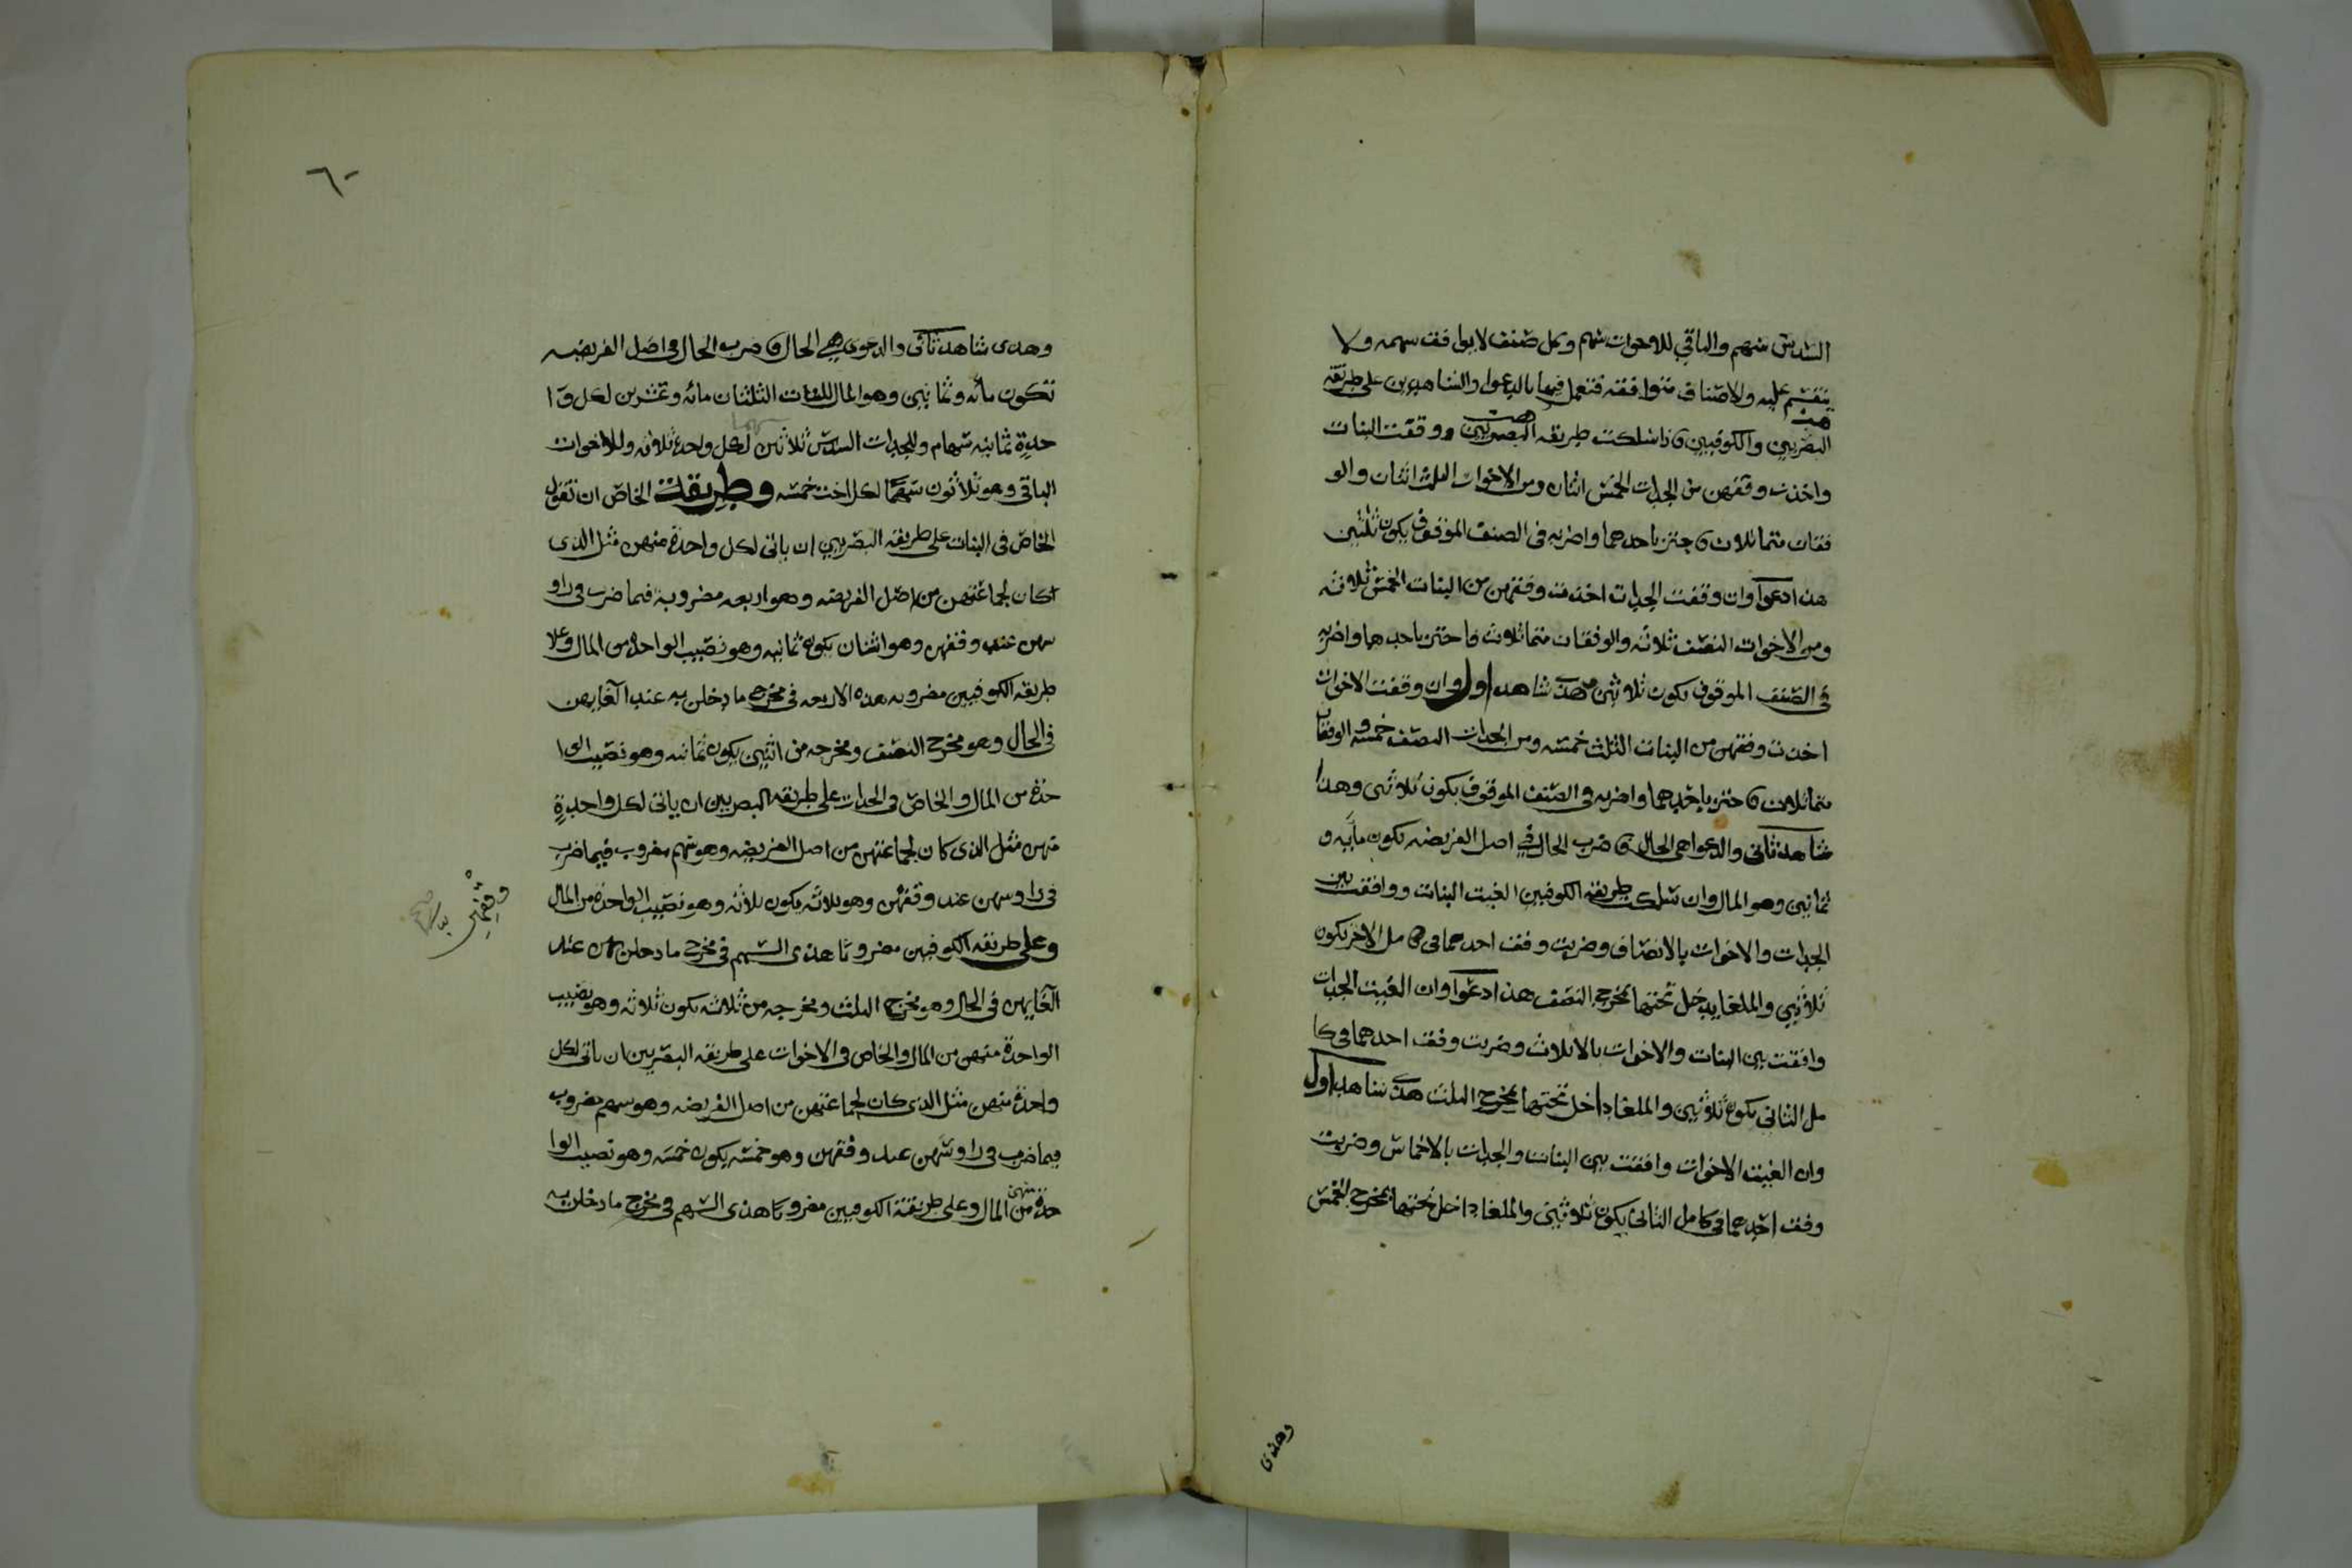 السدس سهم والباقي للاخوات سهم وكل صنف لا يوافقه سهمه ولا
ينقسم عليه والاصناف متوافقه فتعمل فيها بالدعوا والشاهدين على طريقه
البصريين والكوفيين فاذا سلكت طريقه البصريين ووقفت البنات
واخذت وفقهن من الجدات الخمس اثنان ومن الاخوات الثلث اثنان والو
فقان متماثلان فاجتز باحدهما واضربه في الصنف الموقوف يكون ثلثين
هذا دعوا وان وقفت الجدات اخذت وفقهن من البنات الخمس ثلاثه
ومن الاخوات النصف ثلاثه والوفقان متماثلان فاجتز باحدهما واضربه
في الصنف الموقوف يكون ثلاثين هذى شاهد اول وان وقفت الاخوات
اخذت وفقهن من البنات الثلث خمسه ومن الجدات النصف خمسه والوفقان
متماثلان فاجتز باحدهما واضربه في الصنف الموقوف يكون ثلاثين وهذا
شاهد ثاني والدعوا هي الحال فاضرب الحال في اصل الفريضه تكون مايه و
ثمانين وهو المال وان سلكت طريقه الكوفيين الغيت البنات ووافقت بين
الجدات والاخوات بالانصاف وضربت وفق احدهما في كامل الاخر يكون
ثلاثين والملغا يدخل تحتها بمخرج النصف هذا دعوا وان الغيت الجدات
وافقت بين البنات والاخوات بالاثلاث وضربت وفق احدهما في كا
مل الثاني يكون ثلاثين والملغا داخل تحتها بمخرج الثلث هذى شاهد اول
وان الغيت الاخوات وافقت بين البنات والجدات بالاخماس وضربت
وفق احدهما في كامل الثاني يكون ثلاثين والملغا داخل تحتها بمخرج الخمس
وهذى
٦٠
وهذى شاهد ثاني والدعوى هي الحال فاضرب الحال في اصل الفريضه
تكون مائه وثمانين وهو المال للبنات الثلثان مائه وعشرين لكل وا
حدة ثمانيه سهام وللجدات السدس ثلاثين لكل واحدة ثلاثه وللاخوات
الباقي وهو ثلاثون سهما لكل اخت خمسه وطريقة الخاص ان تقول
الخاص في البنات على طريقه البصريين ان ياتي لكل واحدة منهن مثل الذي
كان لجماعتهن من اصل الفريضه وهو اربعه مضروبة فيما ضرب في راو
سهن عند وفقهن وهو اثنان يكون ثمانيه وهو نصيب الواحدة من المال وعلا
طريقه الكوفيين مضروبه هذه الاربعه في مخرج ما دخلن به عند الغايهن
في الحال وهو مخرج النصف ومخرجه من اثنين يكون ثمانيه وهو نصيب الوا
حدة من المال والخاص في الجدات على طريقه البصريين ان ياتي لكل واحدةٍ
منهن مثل الذي كان لجماعتهن من اصل الفريضه وهو سهم مضروب فيما ضرب
في راوسهن عند وفقهن وهو ثلاثه يكون ثلاثه وهو نصيب الواحدة من المال
وعلى طريقه الكوفيين مضروبًا هذى السهم في مخرج ما دخلن به عند
الغايهن في الحال وهو مخرج الثلث ومخرجه من ثلاثه يكون ثلاثه وهو نصيب
الواحدة منهن من المال والخاص في الاخوات على طريقه البصريين ان ياتي لكل
واحدة منهن مثل الذي كان لجماعتهن من اصل الفريضه وهو سهم مضروب
فيما ضرب في راوسهن عند وفقهن وهو خمسه يكون خمسه وهو نصيب الوا
حدة منهن من المال وعلى طريقة الكوفيين مضروبًا هذى السهم في مخرج ما دخلن به
وقفهن